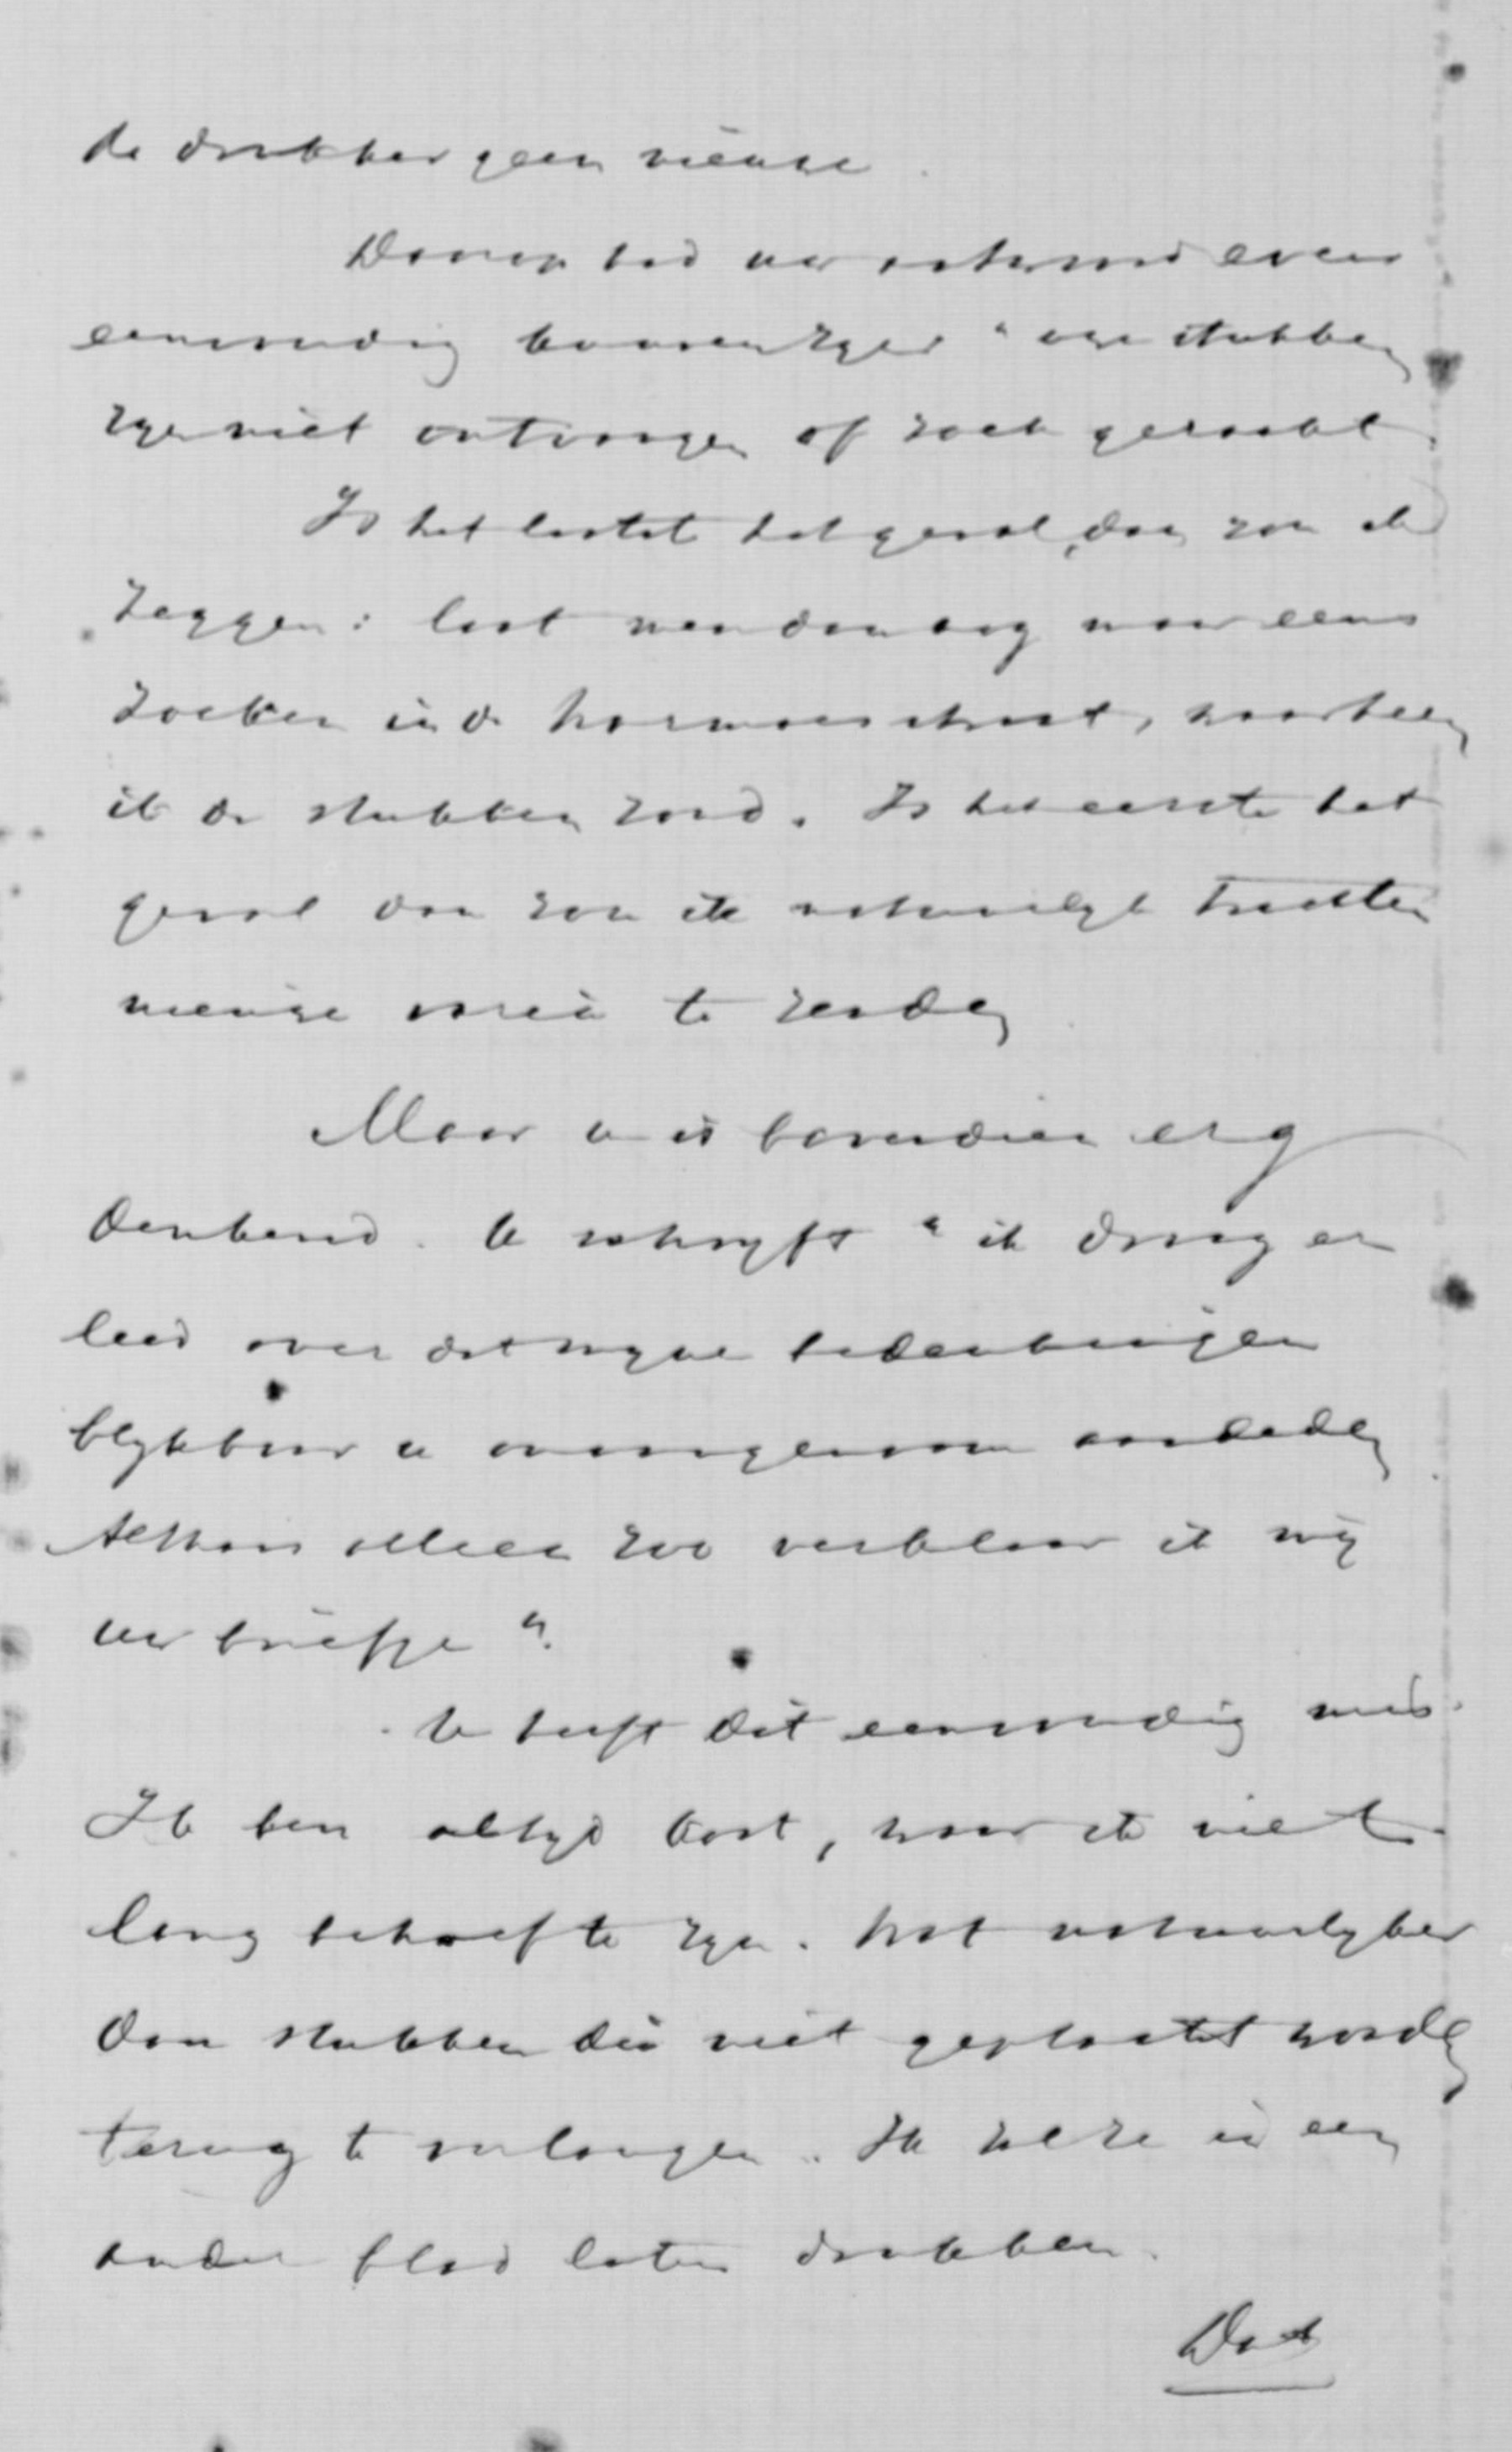 de drukker geen nieuwe.
Daarop had uw antwoord even
eenvoudig kunnen zyn "uw stukken
zyn niet ontvangen of zoek geraakt.
Is het laatste het geval, dan zou ik
zeggen: laat men dan nog maar eens
zoeken in de Warmoesstraat, waarheen
ik de stukken zond. Is het eerste het
geval dan zou ik natuurlyk trachten
nieuwe voor u te zenden
Maar u is bovendien erg
denkend. U schryft "ik draag er
leed over dat myne bedenkingen
blykbaar u onaangenaam aandeden
Althans alleen zoo verklaar ik my
uw briefje".
U heeft dit eenvoudig mis.
Ik ben altyd kort, waar ik niet
lang behoef te zyn. Wat natuurlyker
dan stukken die niet geplaatst worden
terug te verlangen. Ik wil ze in een
ander blad laten drukken.
Dat